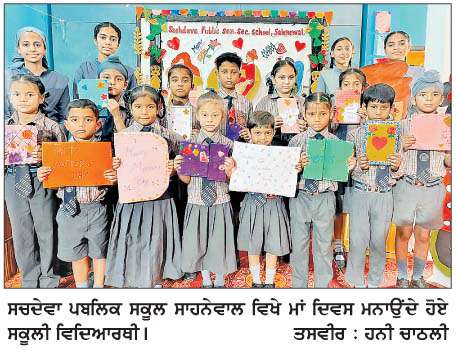 Sachdeva Public Sen. Sec. School, Sahnewal
ਸਚਦੇਵਾ ਪਬਲਿਕ ਸਕੂਲ ਸਾਹਨੇਵਾਲ ਵਿਖੇ ਮਾਂ ਦਿਵਸ ਮਨਾਉਂਦੇ ਹੋਏ
ਸਕੂਲੀ ਵਿਦਿਆਰਥੀ। ਤਸਵੀਰ : ਹਨੀ ਚਾਠਲੀ